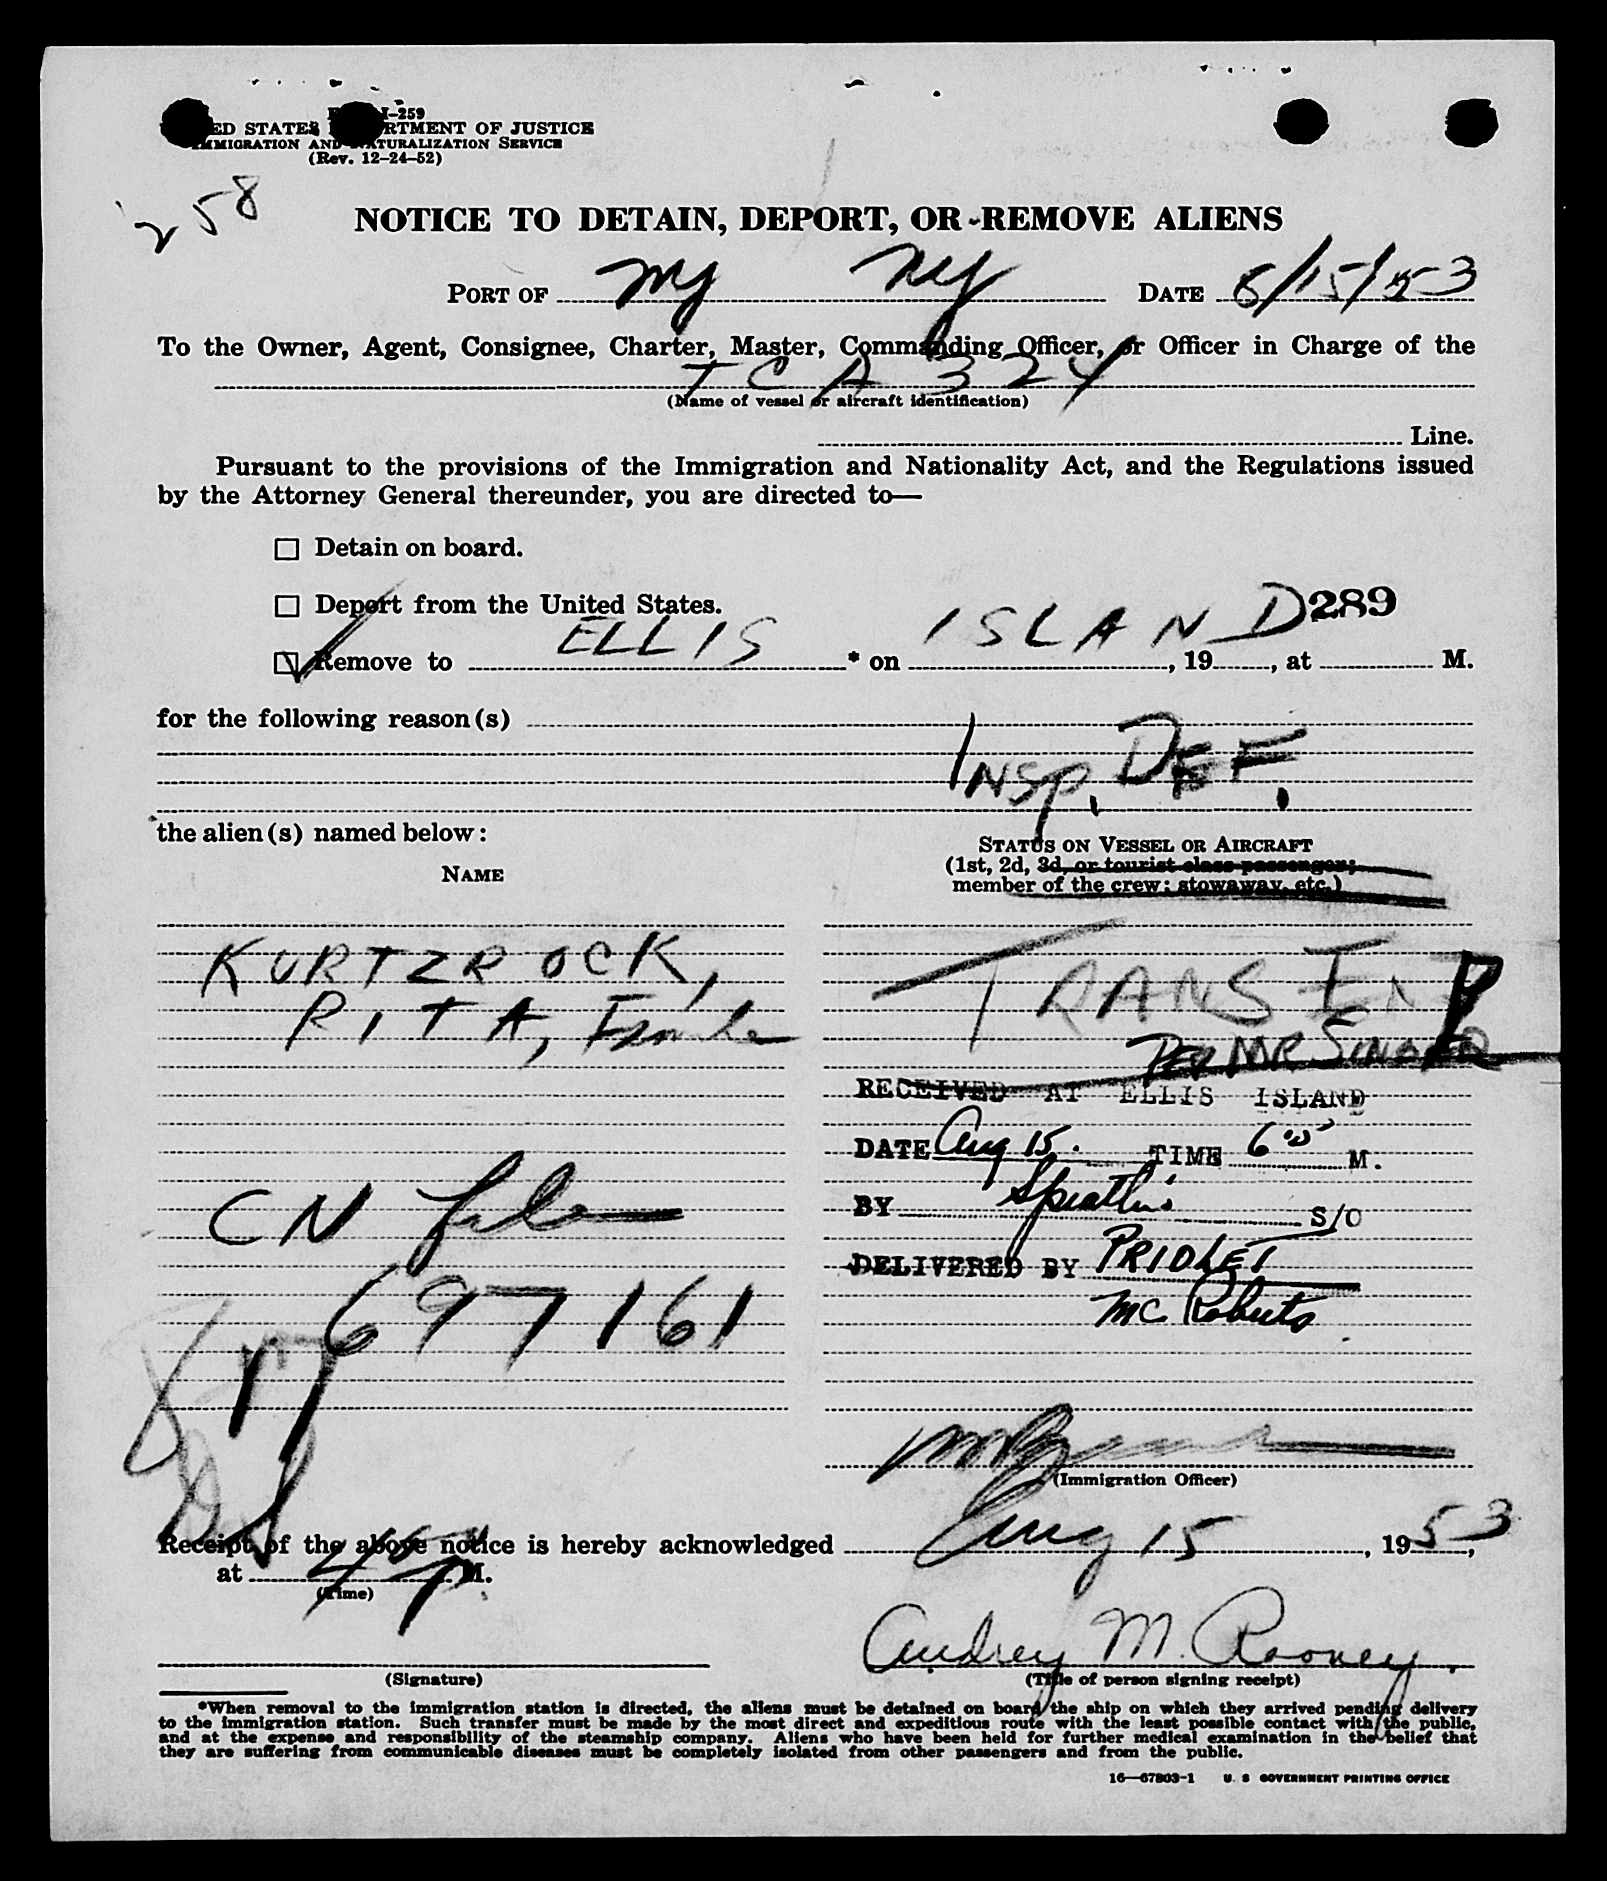 I-259
ED STATES RTMENT OF JUSTICE
IMMIGRATION AND NATURALIZATION SERVICE
(Rev. 12-24-52)
258
NOTICE TO DETAIN, DEPORT, OR REMOVE ALIENS
PORT OF NY NY DATE 8/15/53
To the Owner, Agent, Consignee, Charter, Master, Commanding Officer, or Officer in Charge of the
TCA 324
(Name of vessel or aircraft identification)
Line.
Pursuant to the provisions of the Immigration and Nationality Act, and the Regulations issued
by the Attorney General thereunder, you are directed to—
Detain on board.
Deport from the United States. 289
Remove to ELLIS * on ISLAND, 19, at M.
for the following reason(s)
INSP. DEF.
the alien(s) named below:
STATUS ON VESSEL OR AIRCRAFT
(1st, 2d, 3d, or tourist class passenger;
member of the crew; stowaway, etc.)
NAME
KURTZROCK,
RITA, Female
TRANS IN
PER MR SINGER
RECEIVED AT ELLIS ISLAND
DATE Aug 15. TIME 6 00 M.
BY S/O
CN file
DELIVERED BY PRIDLET
697161
Mc Roberts
(Immigration Officer)
Receipt of the above notice is hereby acknowledged Aug 15, 1953,
at M.
(Time)
Audrey M. Rooney.
(Signature) (Title of person signing receipt)
*When removal to the immigration station is directed, the aliens must be detained on board the ship on which they arrived pending delivery
to the immigration station. Such transfer must be made by the most direct and expeditious route with the least possible contact with the public,
and at the expense and responsibility of the steamship company. Aliens who have been held for further medical examination in the belief that
they are suffering from communicable diseases must be completely isolated from other passengers and from the public.
16—67803-1 U. S. GOVERNMENT PRINTING OFFICE